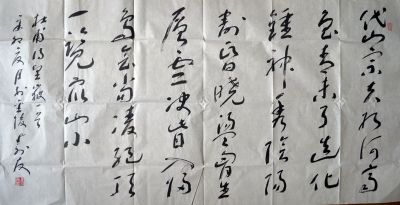 岱宗夫如何齊
魯青未了造化
鍾神秀陰陽
割昏曉盪胸生
層雲決眥入歸
鳥會當凌絕頂
一覽眾山小
杜甫詩望嶽一首
辛卯夏月於金陵